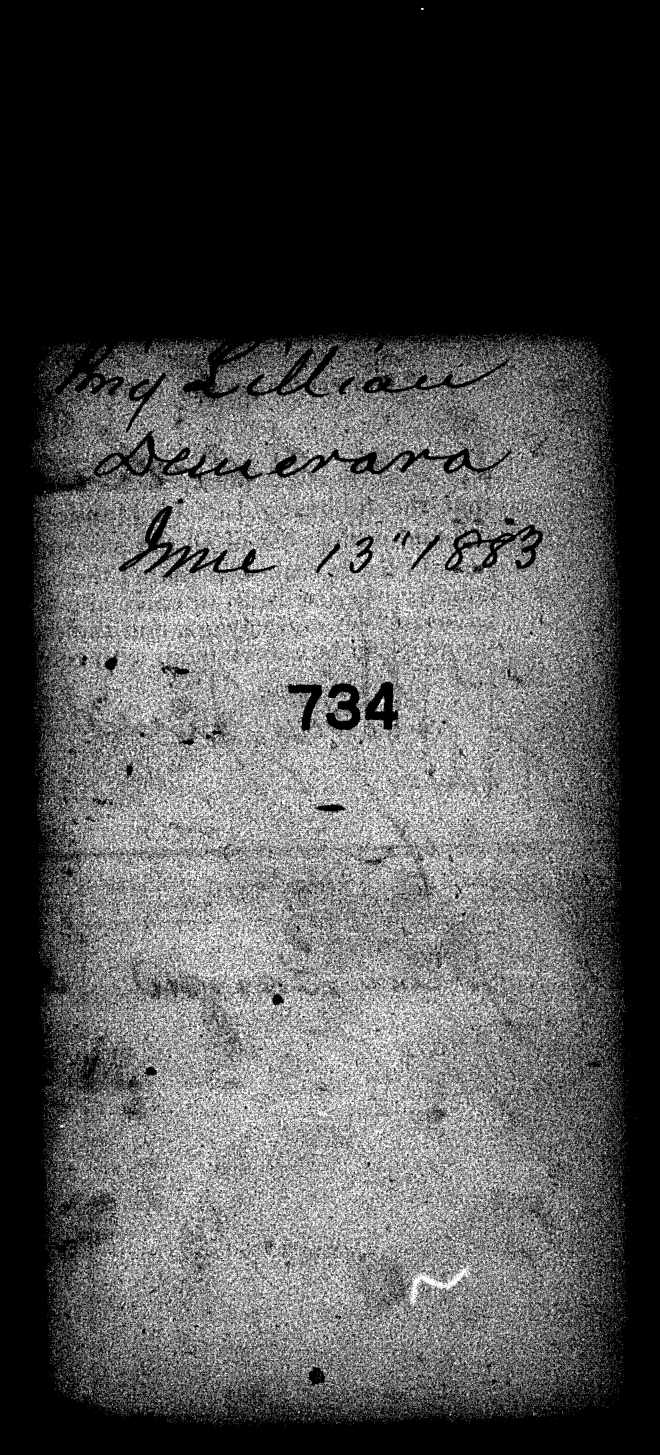 Brig Lillian
Demerara
June 13" 1883
734